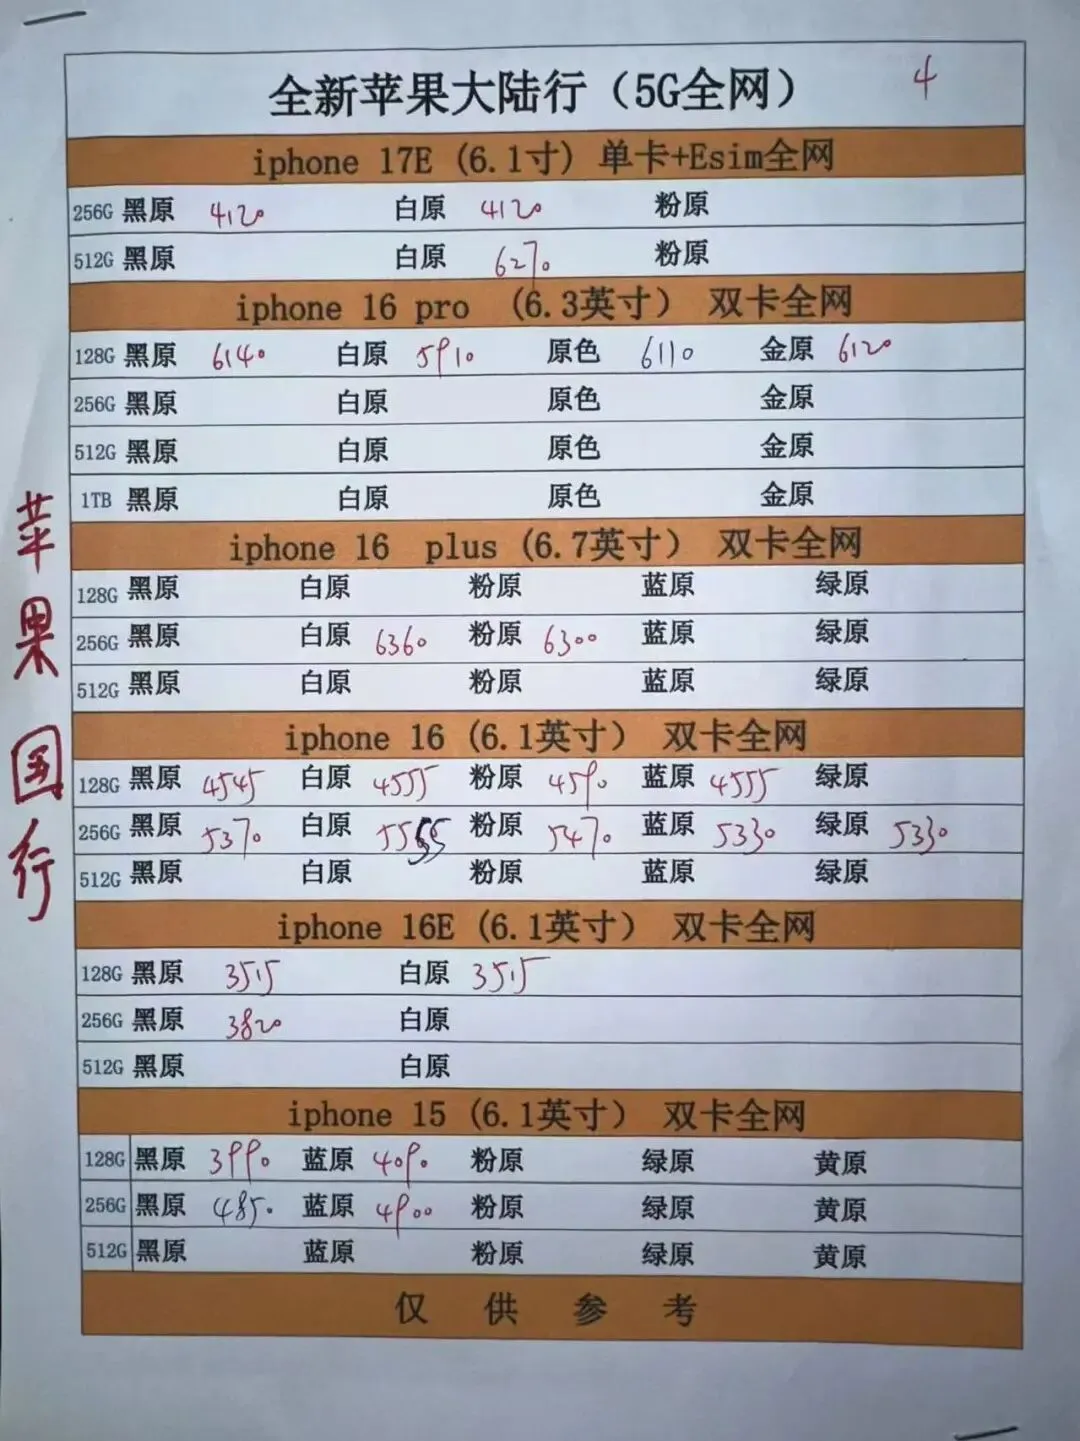 全新苹果大陆行（5G全网） 4
iphone 17E (6.1寸) 单卡+Esim全网
256G 黑原 4120 白原 4120 粉原
512G 黑原 白原 6270 粉原
iphone 16 pro （6.3英寸） 双卡全网
128G 黑原 6140 白原 5910 原色 6110 金原 6120
256G 黑原 白原 原色 金原
512G 黑原 白原 原色 金原
1TB 黑原 白原 原色 金原
iphone 16 plus (6.7英寸） 双卡全网
128G 黑原 白原 粉原 蓝原 绿原
256G 黑原 白原 6360 粉原 6300 蓝原 绿原
512G 黑原 白原 粉原 蓝原 绿原
iphone 16 (6.1英寸） 双卡全网
128G 黑原 4545 白原 4555 粉原 4590 蓝原 4555 绿原
256G 黑原 5370 白原 5555 粉原 5470 蓝原 5330 绿原 5330
512G 黑原 白原 粉原 蓝原 绿原
iphone 16E (6.1英寸） 双卡全网
128G 黑原 3515 白原 3515
256G 黑原 3820 白原
512G 黑原 白原
iphone 15 (6.1英寸） 双卡全网
128G 黑原 3990 蓝原 4090 粉原 绿原 黄原
256G 黑原 4850 蓝原 4900 粉原 绿原 黄原
512G 黑原 蓝原 粉原 绿原 黄原
仅供参考
苹果国行